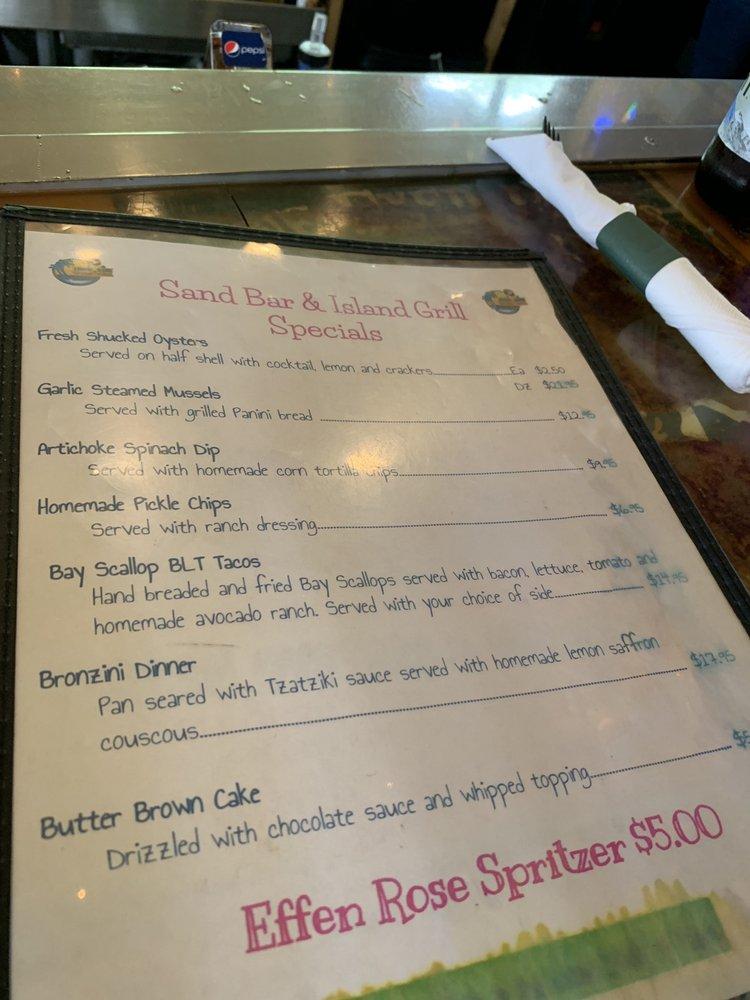 pepsi
Sand Bar & Island Grill
Specials
Fresh Shucked Oysters
Served on half shell with cocktail, lemon and crackers Ea $2.50
Dz
Garlic Steamed Mussels
Served with grilled Panini bread $12.95
Artichoke Spinach Dip
Served with homemade corn tortilla chips $9.95
Homemade Pickle Chips
Served with ranch dressing $6.95
Bay Scallop BLT Tacos
Hand breaded and fried Bay Scallops served with bacon, lettuce, tomato and
homemade avocado ranch. Served with your choice of side $14.95
Bronzini Dinner
Pan seared with Tzatziki sauce served with homemade lemon saffron
couscous $17.95
Butter Brown Cake
Drizzled with chocolate sauce and whipped topping
Effen Rose Spritzer $5.00